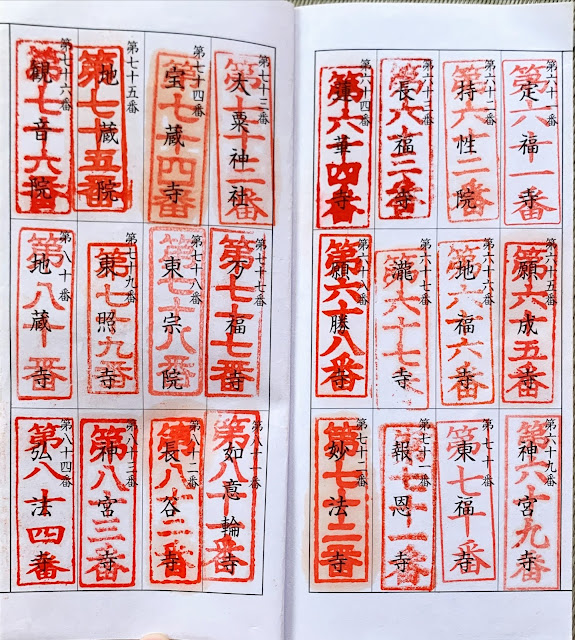 第六十一番
定福寺
第六十一番
第六十二番
持性院
第六十二番
第六十三番
長福寺
第六十三番
第六十四番
蓮華寺
第六十四番
第六十五番
願成寺
第六十五番
第六十六番
地福寺
第六十六番
第六十七番
瀧寺
第六十七番
第六十八番
願勝寺
第六十八番
第六十九番
神宮寺
第六十九番
第七十番
東福寺
第七十番
第七十一番
報恩寺
第七十一番
第七十二番
妙法寺
第七十二番
第七十三番
大粟神社
第七十三番
第七十四番
宝蔵寺
第七十四番
第七十五番
地蔵院
第七十五番
第七十六番
観音院
第七十六番
第七十七番
万福寺
第七十七番
第七十八番
東宗院
第七十八番
第七十九番
東照寺
第七十九番
第八十番
地蔵寺
第八十番
第八十一番
如意輪寺
第八十一番
第八十二番
長谷寺
第八十二番
第八十三番
神宮寺
第八十三番
第八十四番
弘法寺
第八十四番